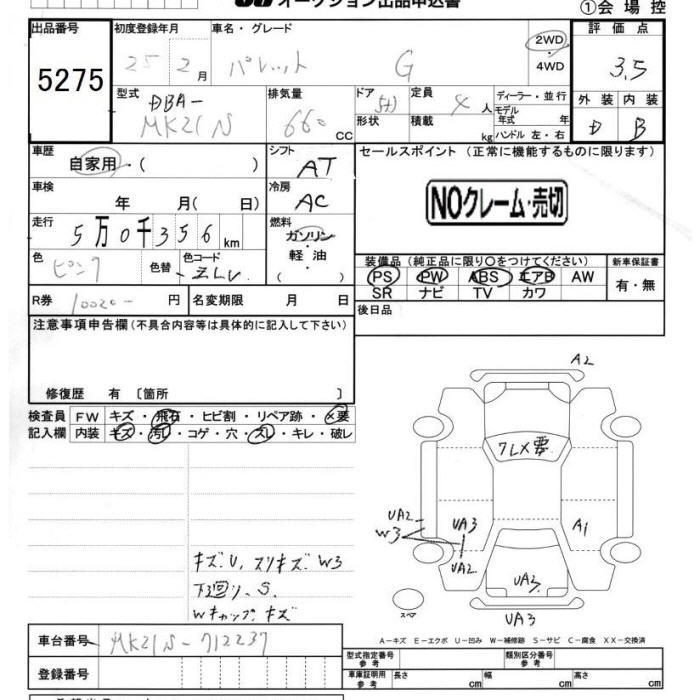 オークション出品申込書
①会場控
出品番号
5275
初度登録年月
25 2月
車名・グレード
パレット G
2WD
4WD
評価点
3.5
型式
DBA-
MK21N
排気量
660 CC
ドア
5D
形状
定員
4人
積載
kg
ディーラー・並行
モデル
年式 年
ハンドル 左・右
外装 内装
D B
車歴
自家用・( )
シフト
AT
セールスポイント (正常に機能するものに限ります)
車検
年 月 ( 日)
冷房
AC
NOクレーム・売切
走行
5万0千356km
燃料
ガソリン
軽油
( )
色
ピンク
色替
色コード
ZLV
装備品 (純正品に限り○をつけてください)
新車保証書
PS PW ABS エアB AW
SR ナビ TV カワ
有・無
R券
10020-円
名変期限 月 日
後日品
注意事項申告欄 (不具合内容等は具体的に記入して下さい)
修復歴 有 〔箇所 〕
検査員
記入欄
FW キズ・飛石・ヒビ割・リペア跡・×要
内装 キズ・汚レ・コゲ・穴・スレ・キレ・破レ
A2
フレX要
UA2
W3
UA3
UA2
A1
UA3
UA3
スペア
キズU、スリキズW3
下廻り、S
Wキャップキズ
A-キズ E-エクボ U-凹み W-補修跡 S-サビ C-腐食 XX-交換済
車台番号
MK21N-712237
登録番号
型式指定番号
参考
類別区分番号
参考
車庫証明用
参考
長さ cm
幅 cm
高さ cm